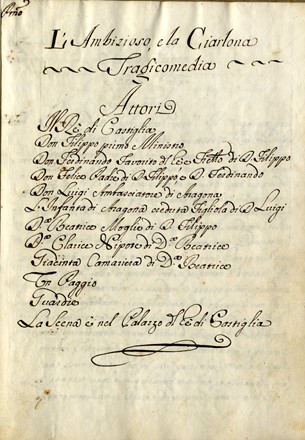 Pmo
L'Ambizioso, e la Ciarlona
Tragicomedia
Attori
Il Rè di Castiglia
Don Filippo primo Ministro
Don Ferdinando Favorito del Rè e Frello di D. Filippo
Don Felice Padre di D. Filippo e D. Ferdinando
Don Luigi Ambasciatore di Aragona
L'Infanta di Aragona creduta Figliola di D. Luigi
D.a Beatrice Moglie di D. Filippo
D.a Clarice Nipote di D.a Beatrice
Giacinta Camariera di D.a Beatrice
Un Paggio
Guardie
La Scena è nel Palazzo del Rè di Castiglia